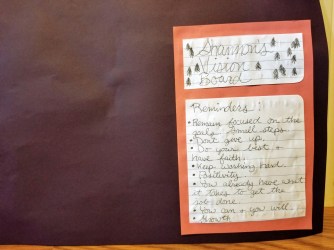 Shannon's
Vision
Board
Reminders:
• Remain focused on the
goals. Small steps.
• Don't give up.
• Do your best +
have faith.
• Keep working hard.
• Positivity.
• You already have what
it takes to get the
job done.
• You can + you will
• Growth